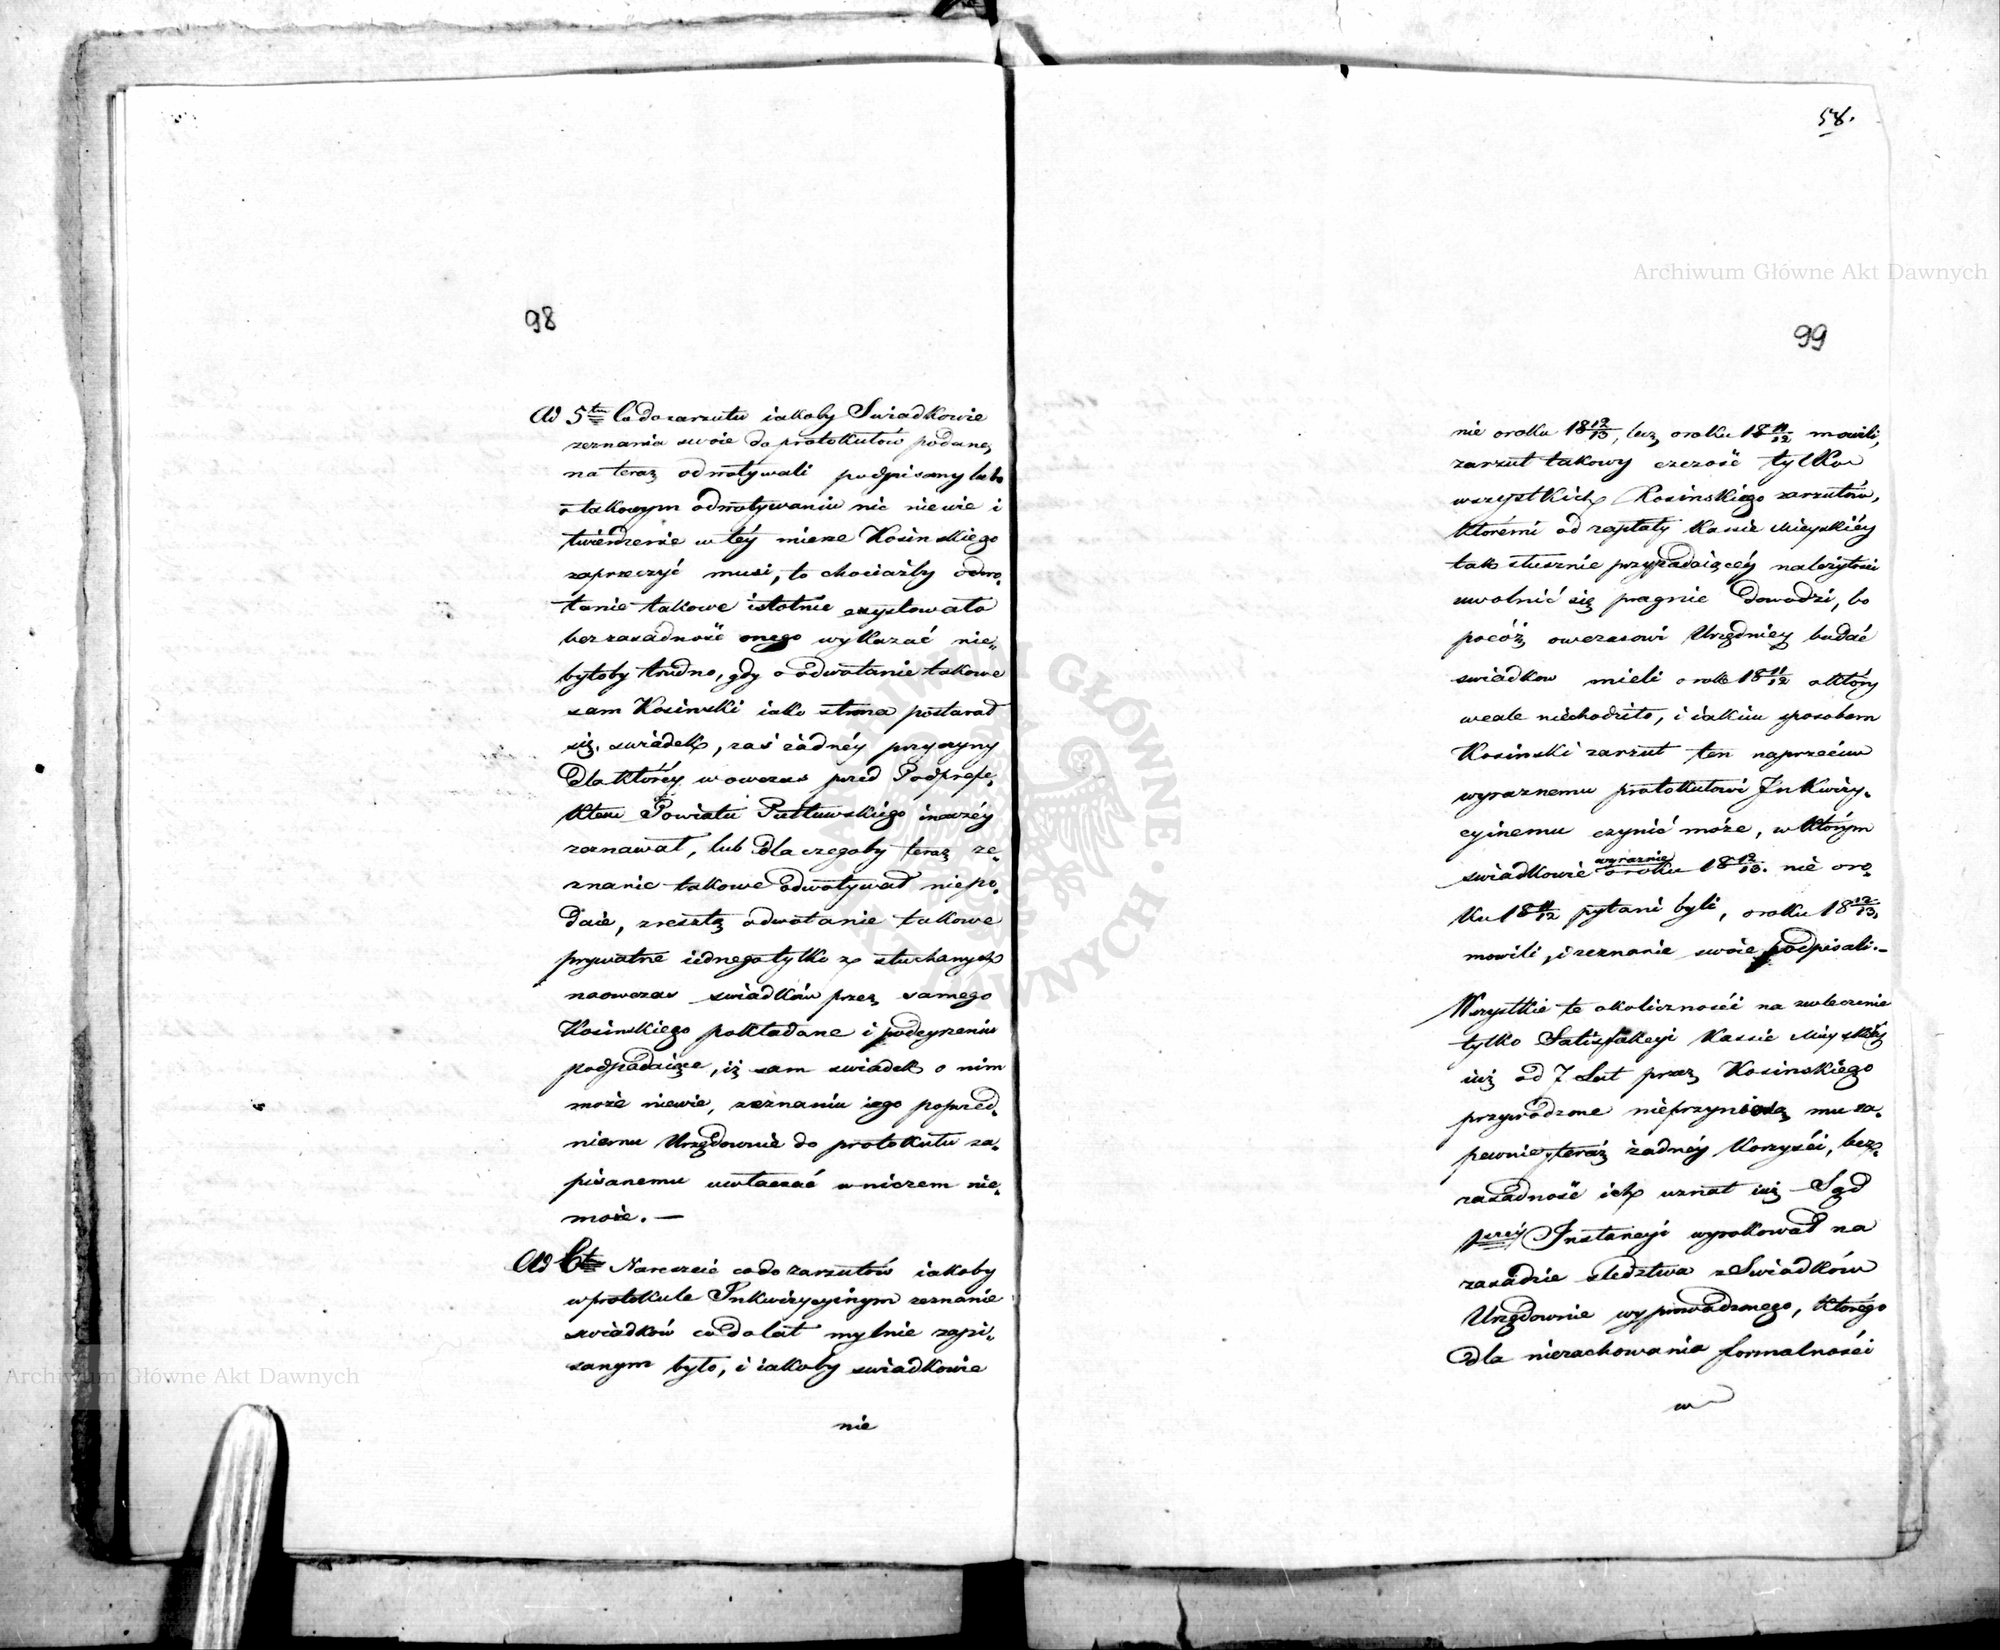 98
Ad 5tm Co do zarzutu iakoby Swiadkowie
zeznania swoie do protokułów podane,
na teraz odwoływali podpisany lubo
o takowym odwoływaniu nic niewie i
twierdzenie w téy mierze Kosinskiego
zaprzeczyć musi, to chociażby odwo„
łanie takowe istotnie exystowało
bezzasadność onego wykazać nie„
byłoby trudno, gdy o odwołanie takowe
sam Kosinski iako strona postarał
się, swiadek, zaś żadnéy przyczyny
dla któréy wowczas przed Podprefe„
ktem Powiatu Pułtuwskiego inaczéy
zeznawał, lub dla czegoby teraz ze„
znanie takowe odwoływał niepo„
daie, zresztą odwołanie takowe
prywatne iednego tylko z słuchanych
naowczas swiadków przez samego
Kosinskiego pokładane i podeyrzeniu
podpadaiące, iż sam swiadek o nim
może niewie, zeznaniu iego poprzed„
niemu Urzędownie do protokułu za„
pisanemu uwłaczać w niczem nie„
może. —
Ad 6tm Nareszcie co do zarzutów iakoby
w protokule Inkwizycyinym zeznanie
swiadków co do lat mylnie zapi„
sanym było, i iakoby swiadkowie
nie
58.
99
nie o roku 18 12/13, lecz o roku 18 11/12 mowili,
zarzut takowy czczość tylko
wszystkich Kosinskiego zarzutów,
któremi od zapłaty Kassie Mieyskiéy
tak słusznie przypadaiącéy należytości
uwolnić się pragnie dowodzi, bo
pocóż owczasowi Urzędnicy badać
swiadkow mieli o rok 18 11/12 o który
wcale niechodziło, i iakim sposobem
Kosinski zarzut ten naprzeciw
wyraznemu protokułowi Inkwizy„
cyinemu czynić może, w którym
swiadkowie wyraznie o roku 18 12/13. nie o ro„
ku 18 11/12 pytani byli, o roku 18 12/13,
mowili, i zeznanie swoie podpisali. —
Wszystkie te okoliczności na zwleczenie
tylko Satisfakcyi Kassie Mieyskiéy
iuż od 7 Lat przez Kosinskiego
przywodzone nieprzyniosą mu za„
pewnie teraz żadnéy korzyści, bez„
zasadność ich uznał iuż Sąd
1wszéy Instancyi wyrokował na
zasadzie sledztwa z Swiadków
Urzędownie wyprowadzonego, którego
dla niezachowania formalności
w
Archiwum Główne Akt Dawnych
Archiwum Główne Akt Dawnych